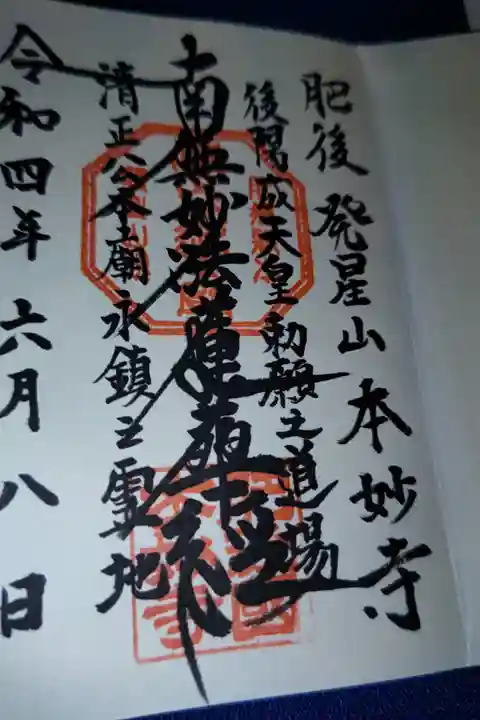 肥後 発星山 本妙寺
後陽成天皇勅願之道場
南無妙法蓮華経
清正公本廟永鎮之霊地
令和四年六月八日